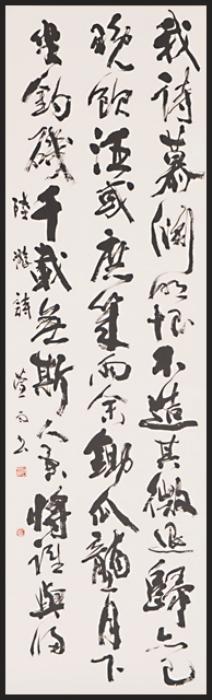 我詩慕淵明恨不造其微退歸亦已
晚飲酒或庶幾雨余鋤瓜壟月下
坐釣磯千載無斯人吾將誰與歸
陸游詩